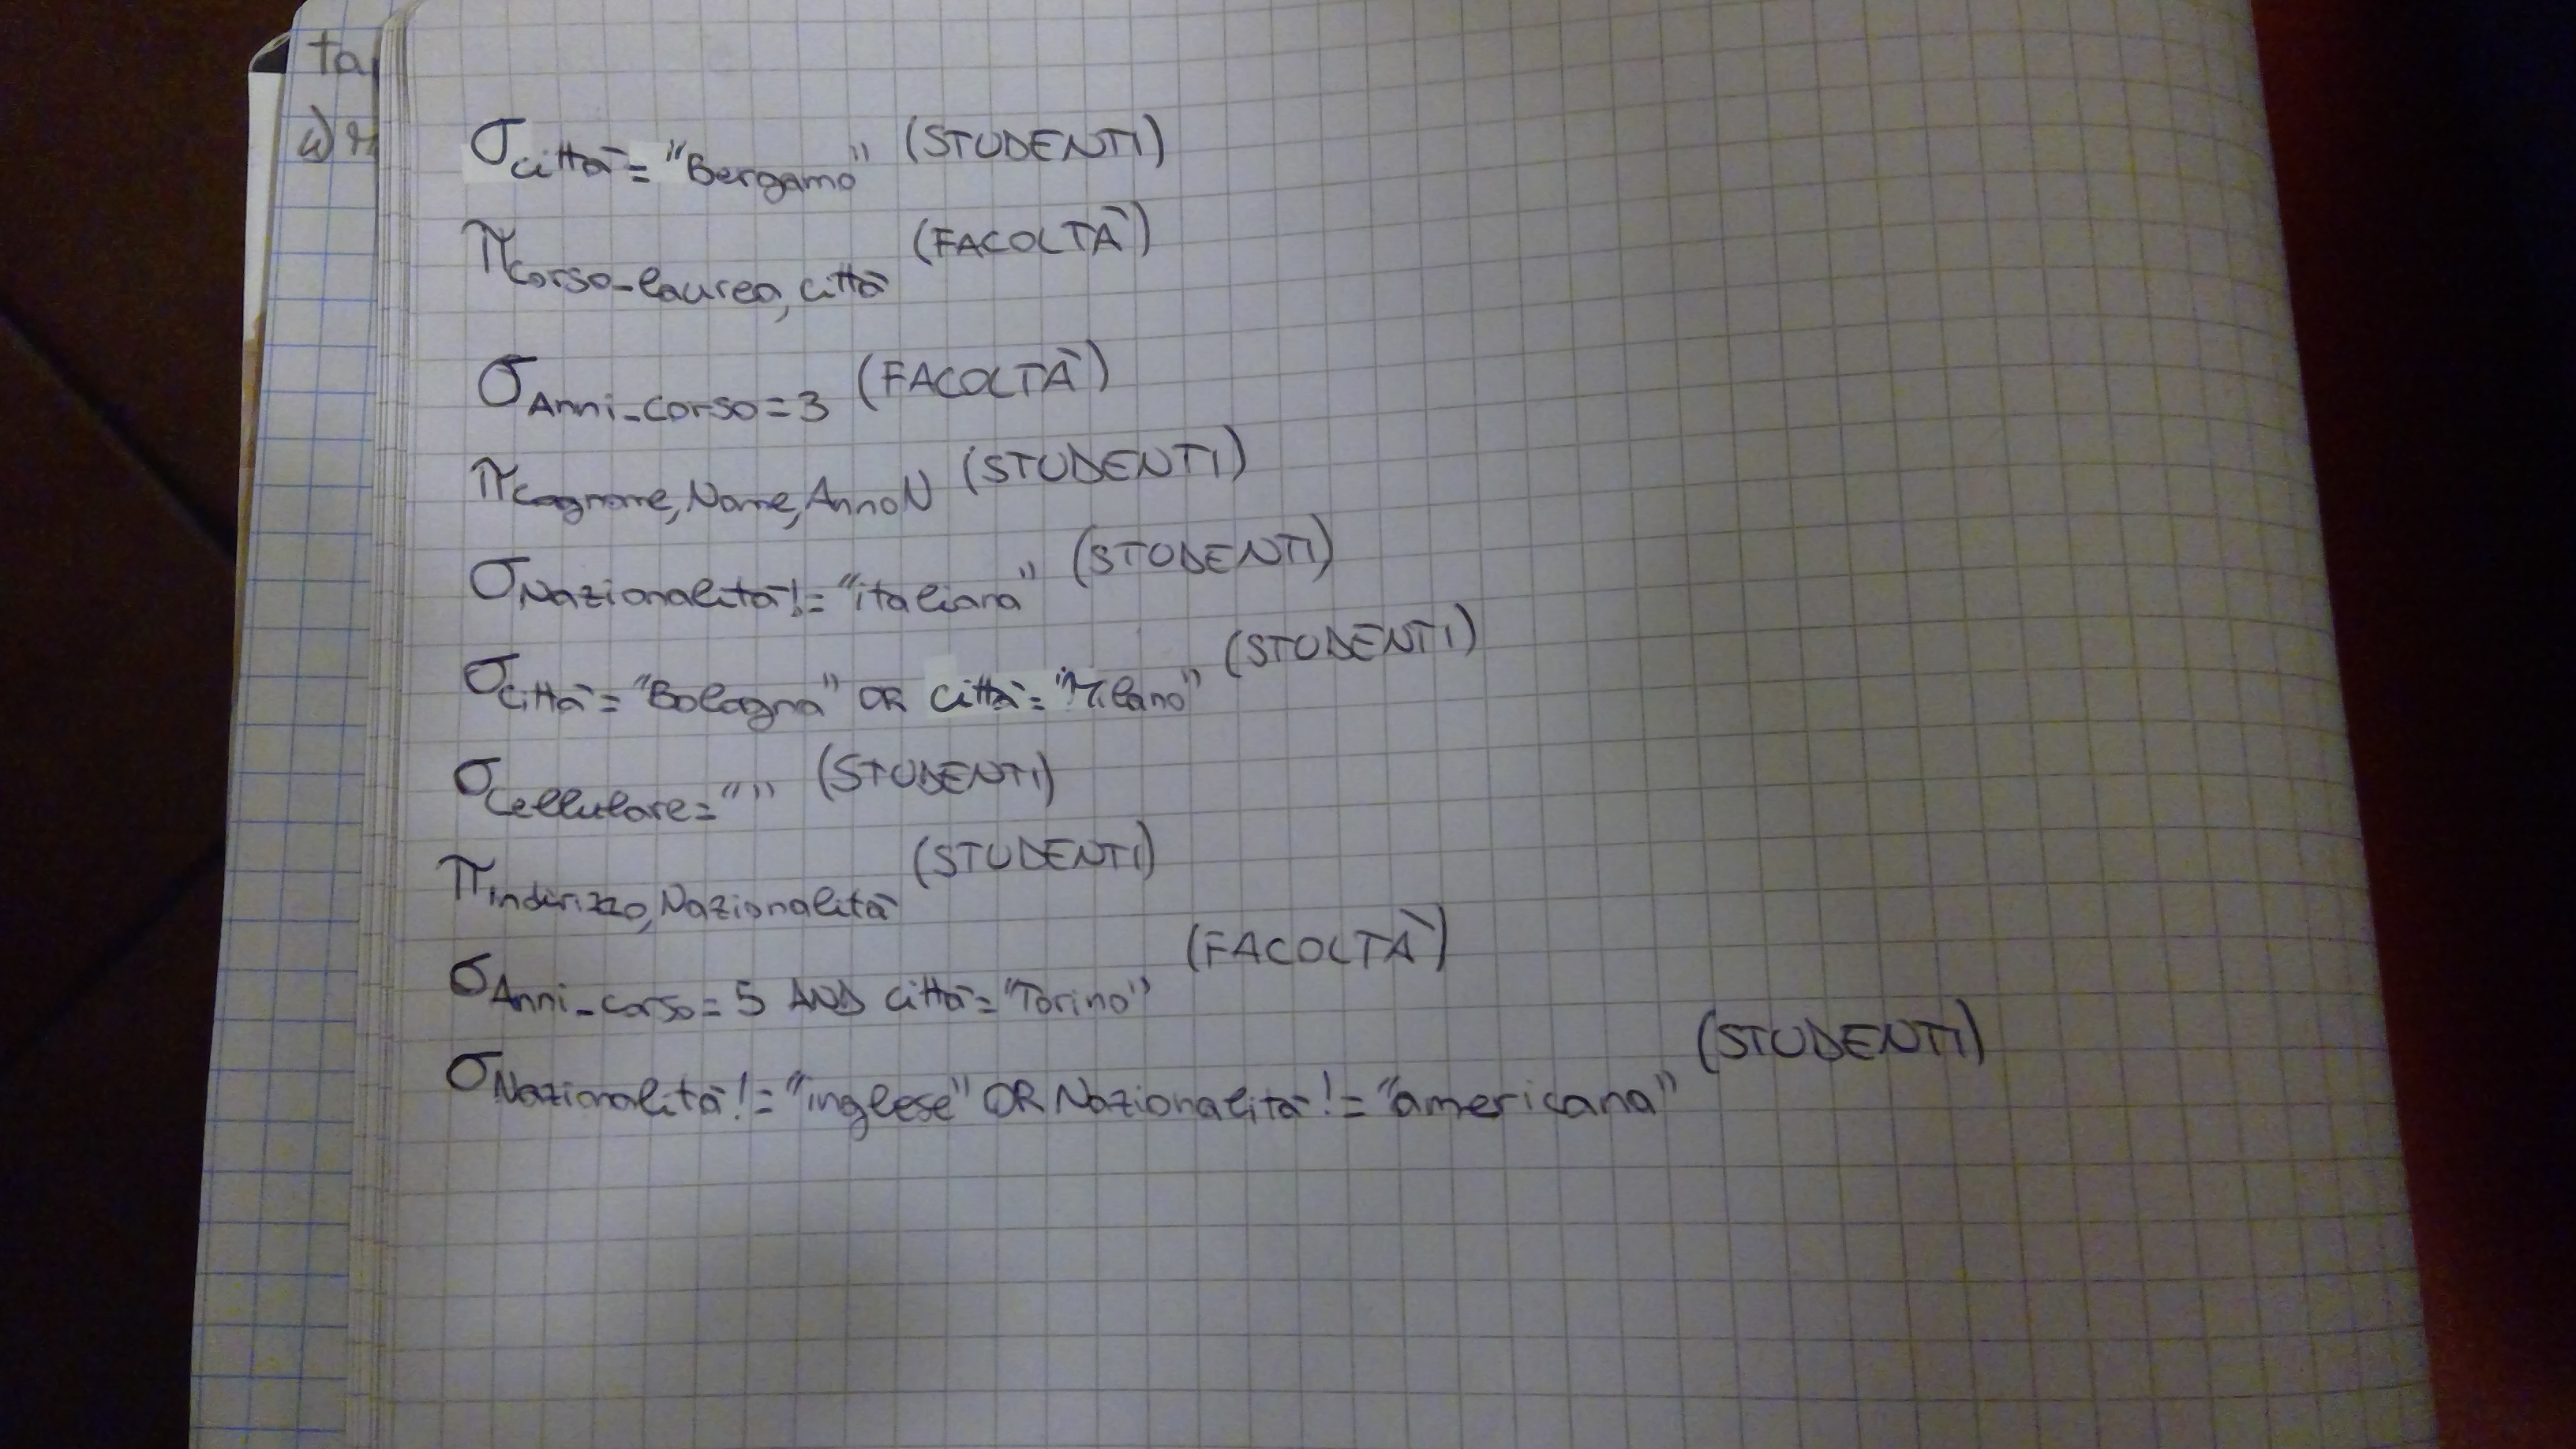 ta
σCittà = "Bergamo" (STUDENTI)
πCorso_laurea, città (FACOLTÀ)
σAnni_corso=3 (FACOLTÀ)
πCognome, Nome, AnnoN (STUDENTI)
σNazionalità != "italiana" (STUDENTI)
σCittà = "Bologna" OR Città = "Milano" (STUDENTI)
σCellulare = "" (STUDENTI)
πIndirizzo, Nazionalità (STUDENTI)
σAnni_corso = 5 AND Città = "Torino" (FACOLTÀ)
σNazionalità != "inglese" OR Nazionalità != "americana" (STUDENTI)